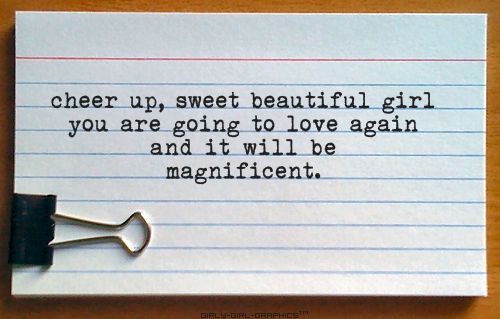 cheer up, sweet beautiful girl
you are going to love again
and it will be
magnificent.
GIRLY-GIRL-GRAPHICS™